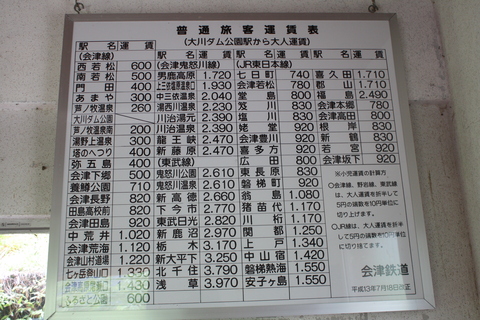 普通旅客運賃表
(大川ダム公園駅から大人運賃)
駅名 運賃
(会津線)
西若松 600
南若松 500
門田 400
あまや 300
芦ノ牧温泉 260
大川ダム公園
芦ノ牧温泉南 200
湯野上温泉 300
塔のへつり 400
弥五島 460
会津下郷 500
養鱒公園 710
会津長野 820
田島高校前 820
会津田島 920
中荒井 1.020
会津荒海 1.120
会津山村道場 1.220
七ヶ岳登山口
会津高原 1.430
ふるさと公園 600
駅名 運賃
(会津鬼怒川線)
男鹿高原 1.720
上三依塩原温泉口 1.930
中三依温泉 2.040
湯西川温泉 2.230
川治湯元 2.390
川治温泉 2.390
龍王峡 2.470
新藤原 2.470
(東武線)
鬼怒川公園 2.610
鬼怒川温泉 2.610
新高徳 2.660
下今市 2.770
東武日光 2.820
新鹿沼 2.970
栃木 3.170
新大平下 3.250
北千住 3.790
浅草 3.970
駅名 運賃
(JR東日本線)
七日町 740
会津若松 780
堂島 780
笈川 830
塩川 830
姥堂 830
会津豊川 920
喜多方 920
広田 800
東長原 830
磐梯町 920
翁島 1.080
猪苗代 1.170
川桁 1.170
関都 1.250
上戸 1.340
中山宿 1.420
磐梯熱海 1.550
安子ヶ島 1.550
駅名 運賃
喜久田 1.710
郡山 1.710
福島 2.490
会津本郷 780
会津高田 800
根岸 830
新鶴 830
若宮 920
会津坂下 920
※小児運賃の計算方
○会津線、野岩線、東武線
は、大人運賃を折半して
5円の端数を10円単位に
切り上げます。
○JR線は、大人運賃を折半
して5円の端数を10円単位
に切り捨てます。
会津鉄道
平成13年7月18日改正